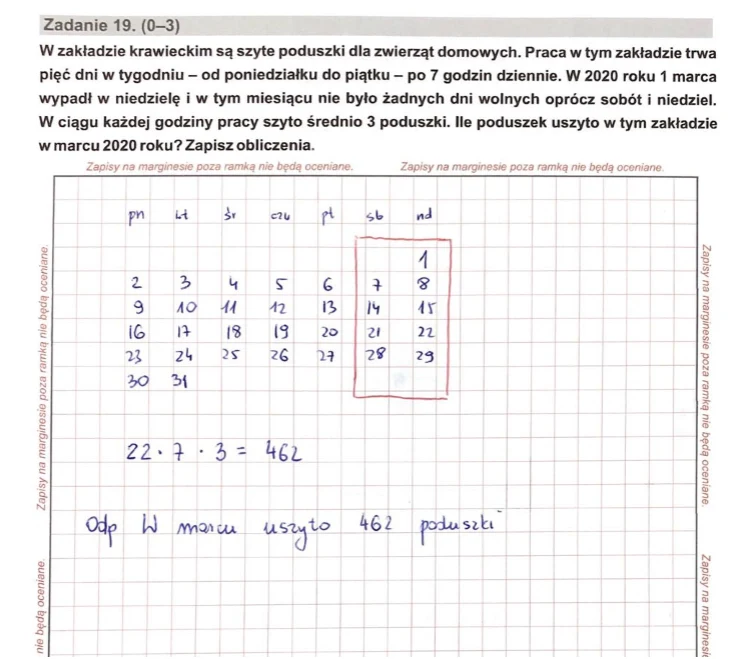 Zadanie 19. (0–3)
W zakładzie krawieckim są szyte poduszki dla zwierząt domowych. Praca w tym zakładzie trwa
pięć dni w tygodniu – od poniedziałku do piątku – po 7 godzin dziennie. W 2020 roku 1 marca
wypadł w niedzielę i w tym miesiącu nie było żadnych dni wolnych oprócz sobót i niedziel.
W ciągu każdej godziny pracy szyto średnio 3 poduszki. Ile poduszek uszyto w tym zakładzie
w marcu 2020 roku? Zapisz obliczenia.
Zapisy na marginesie poza ramką nie będą oceniane. Zapisy na marginesie poza ramką nie będą oceniane.
pn wt śr czw pt sb nd
1
2 3 4 5 6 7 8
9 10 11 12 13 14 15
16 17 18 19 20 21 22
23 24 25 26 27 28 29
30 31
22 · 7 · 3 = 462
Odp W marcu uszyto 462 poduszki
Zapisy na marginesie poza ramką nie będą oceniane.
nie będą oceniane.
Zapisy na marginesie poza ramką nie będą oceniane.
Zapisy na marginesie